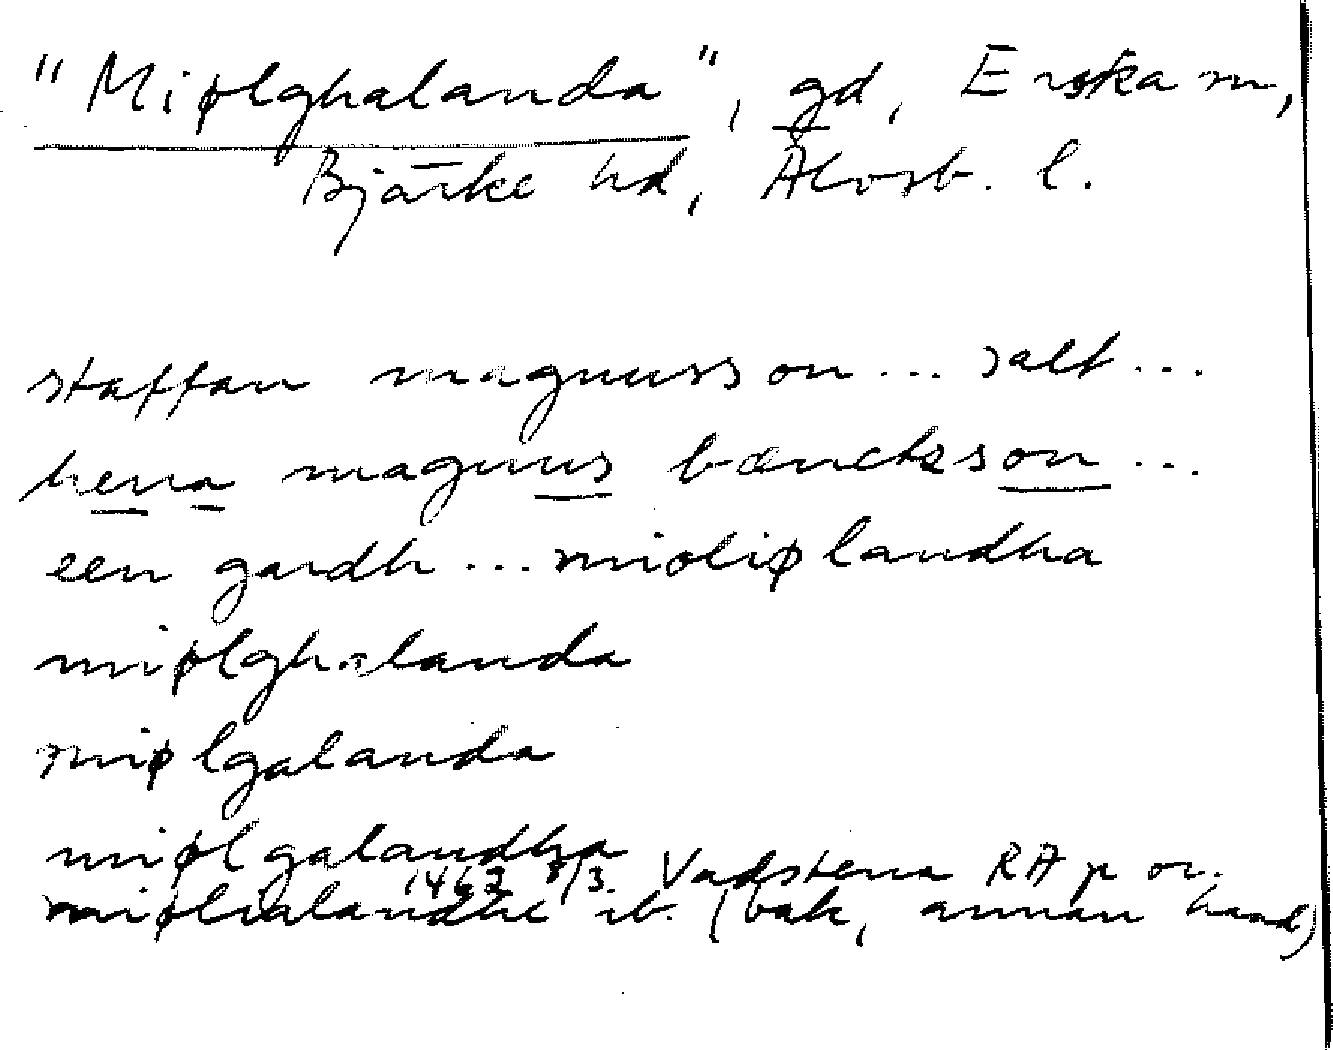 "Miølghalanda", gd, Erska sn,
Bjärke hd, Älvsb. l.
staffan magnusson... salt...
herra magnus bæncktsson...
een gardh... mioliølandha
miølghalanda
miølgalanda
miølgalandha
1462 8/3. Vadstena RA p or.
miølhalandhe ib. (bak, annan hand)